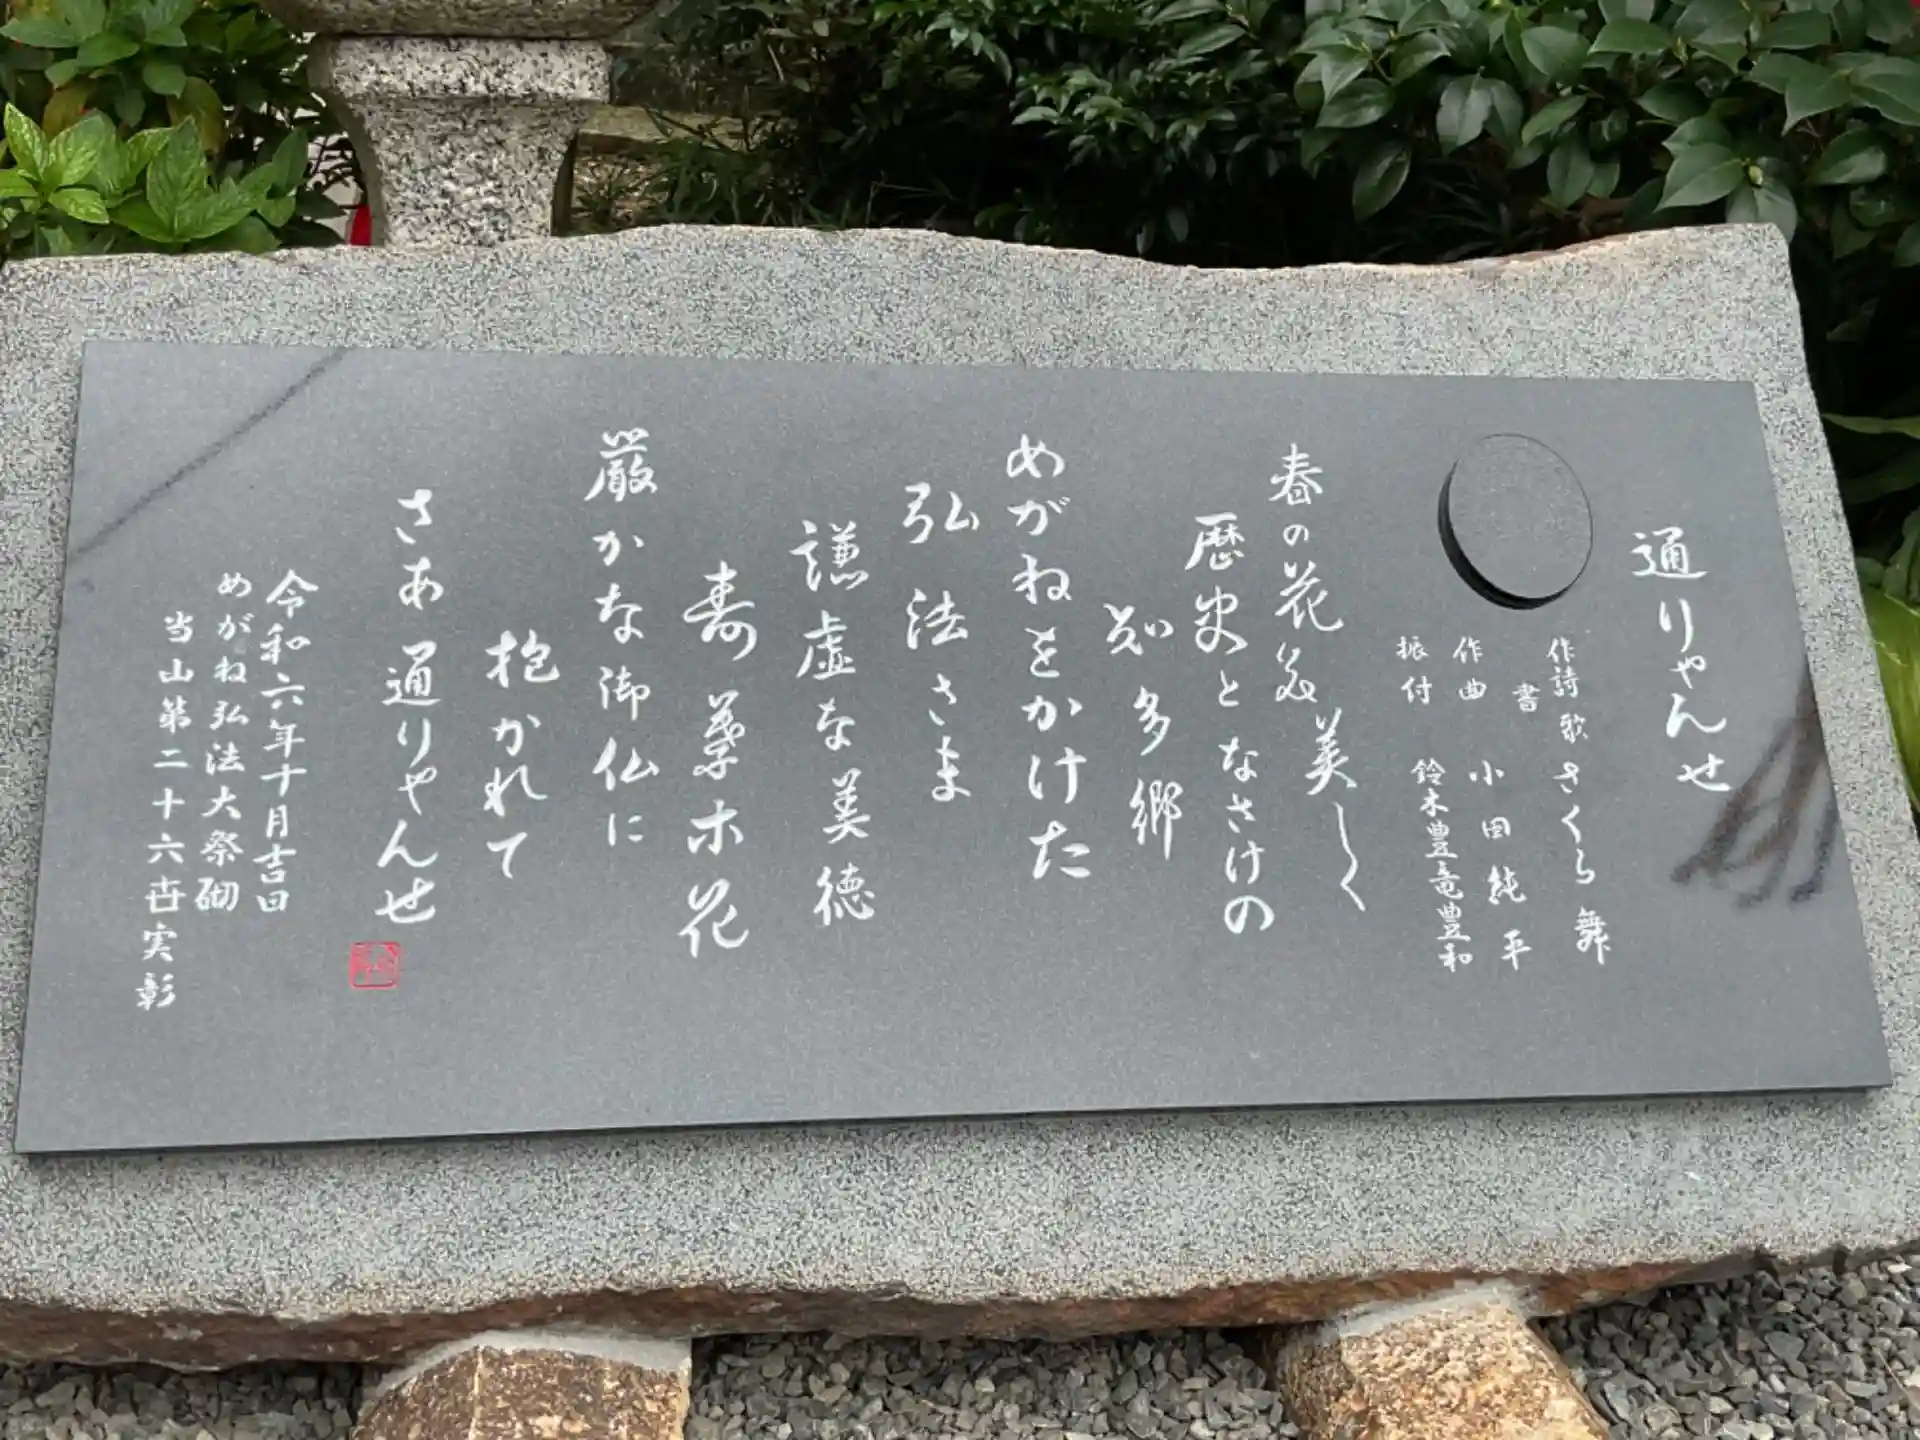 通りゃんせ
作詩 歌 さくら 舞
書
作曲 小田純平
振付 鈴木豊竜豊和
春の花
美しく
歴史となさけの
知多郷
めがねをかけた
弘法さま
謙虚な美徳
寿
花
厳かな御仏に
抱かれて
さあ通りゃんせ
令和六年十月吉日
めがね弘法大祭砌
当山第二十六世実彰